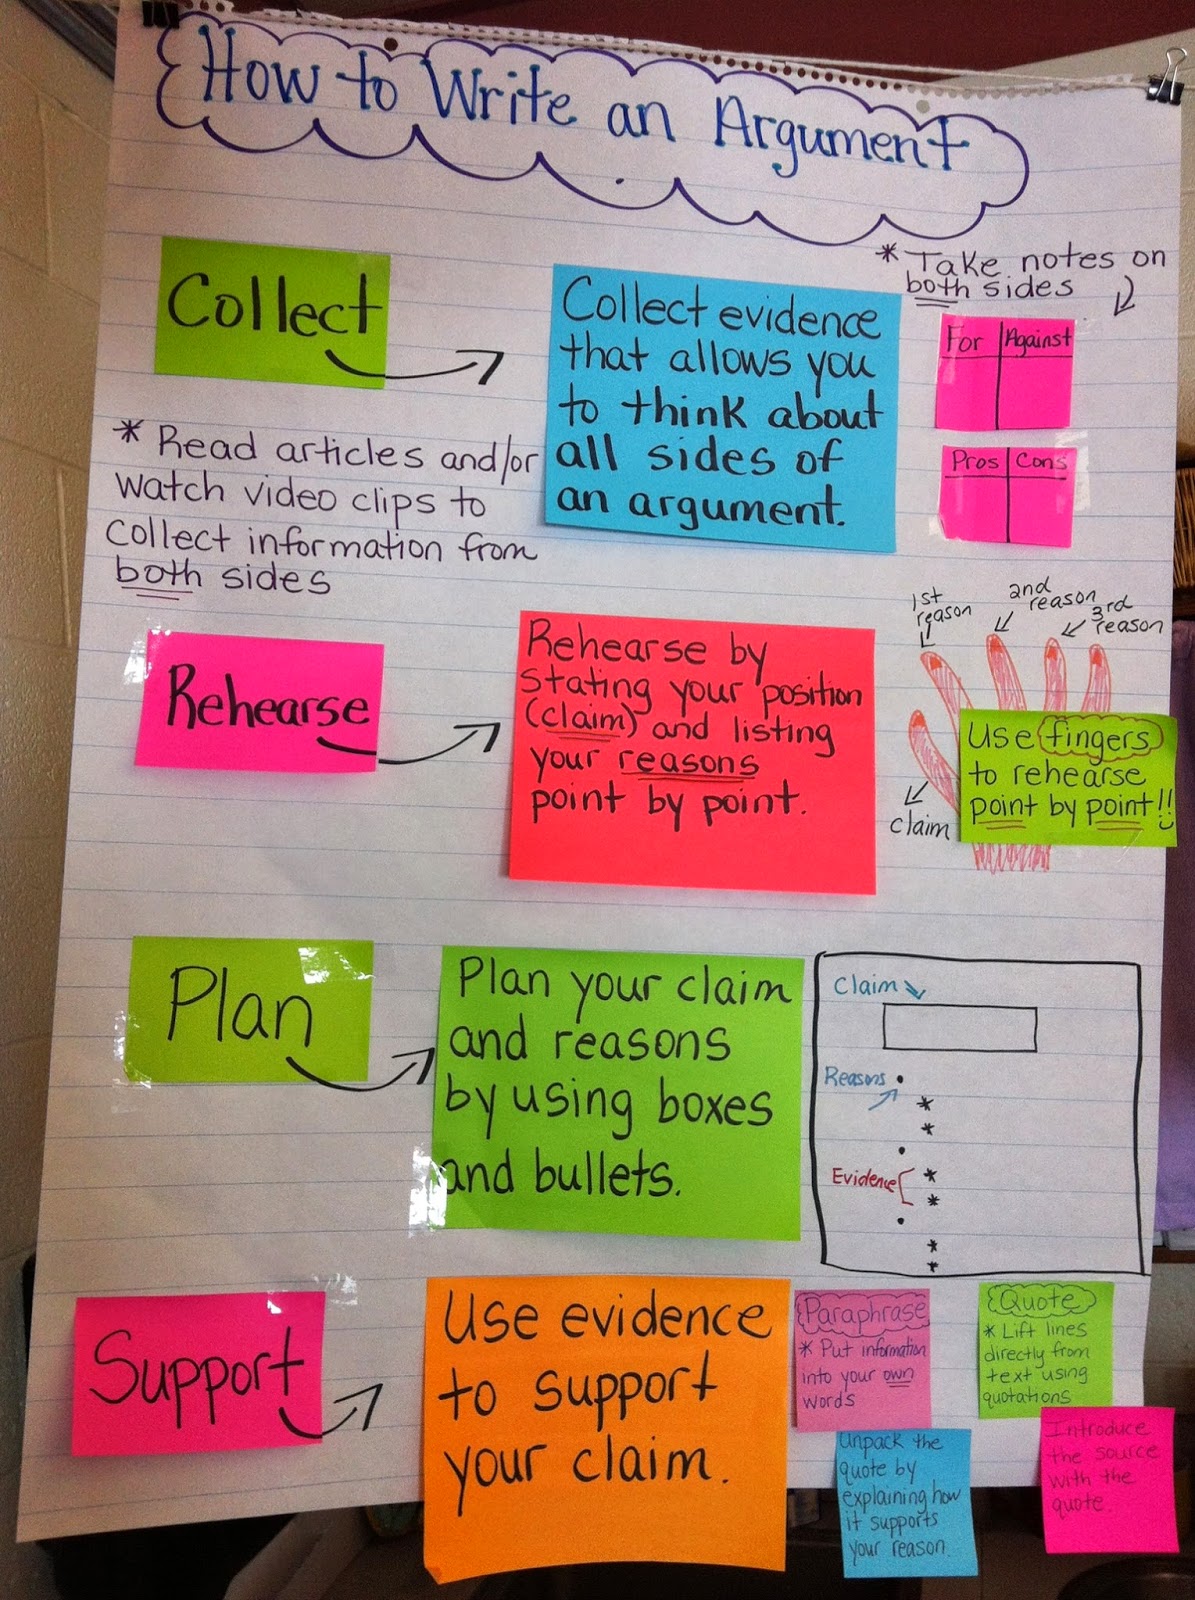 How to Write an Argument
Collect
Collect evidence
that allows you
to think about
all sides of
an argument.
* Take notes on
both sides
For Against
Pros Cons
* Read articles and/or
watch video clips to
collect information from
both sides
Rehearse
Rehearse by
stating your position
(claim) and listing
your reasons
point by point.
1st
reason
2nd
reason
3rd
reason
claim
Use fingers
to rehearse
point by point!!
Plan
Plan your claim
and reasons
by using boxes
and bullets.
Claim
Reasons •
*
*
•
Evidence *
*
•
*
*
Support
Use evidence
to support
your claim.
Paraphrase
* Put information
into your own
words
Quote
* Lift lines
directly from
text using
quotations
Unpack the
quote by
explaining how
it supports
your reason.
Introduce
the source
with the
quote.